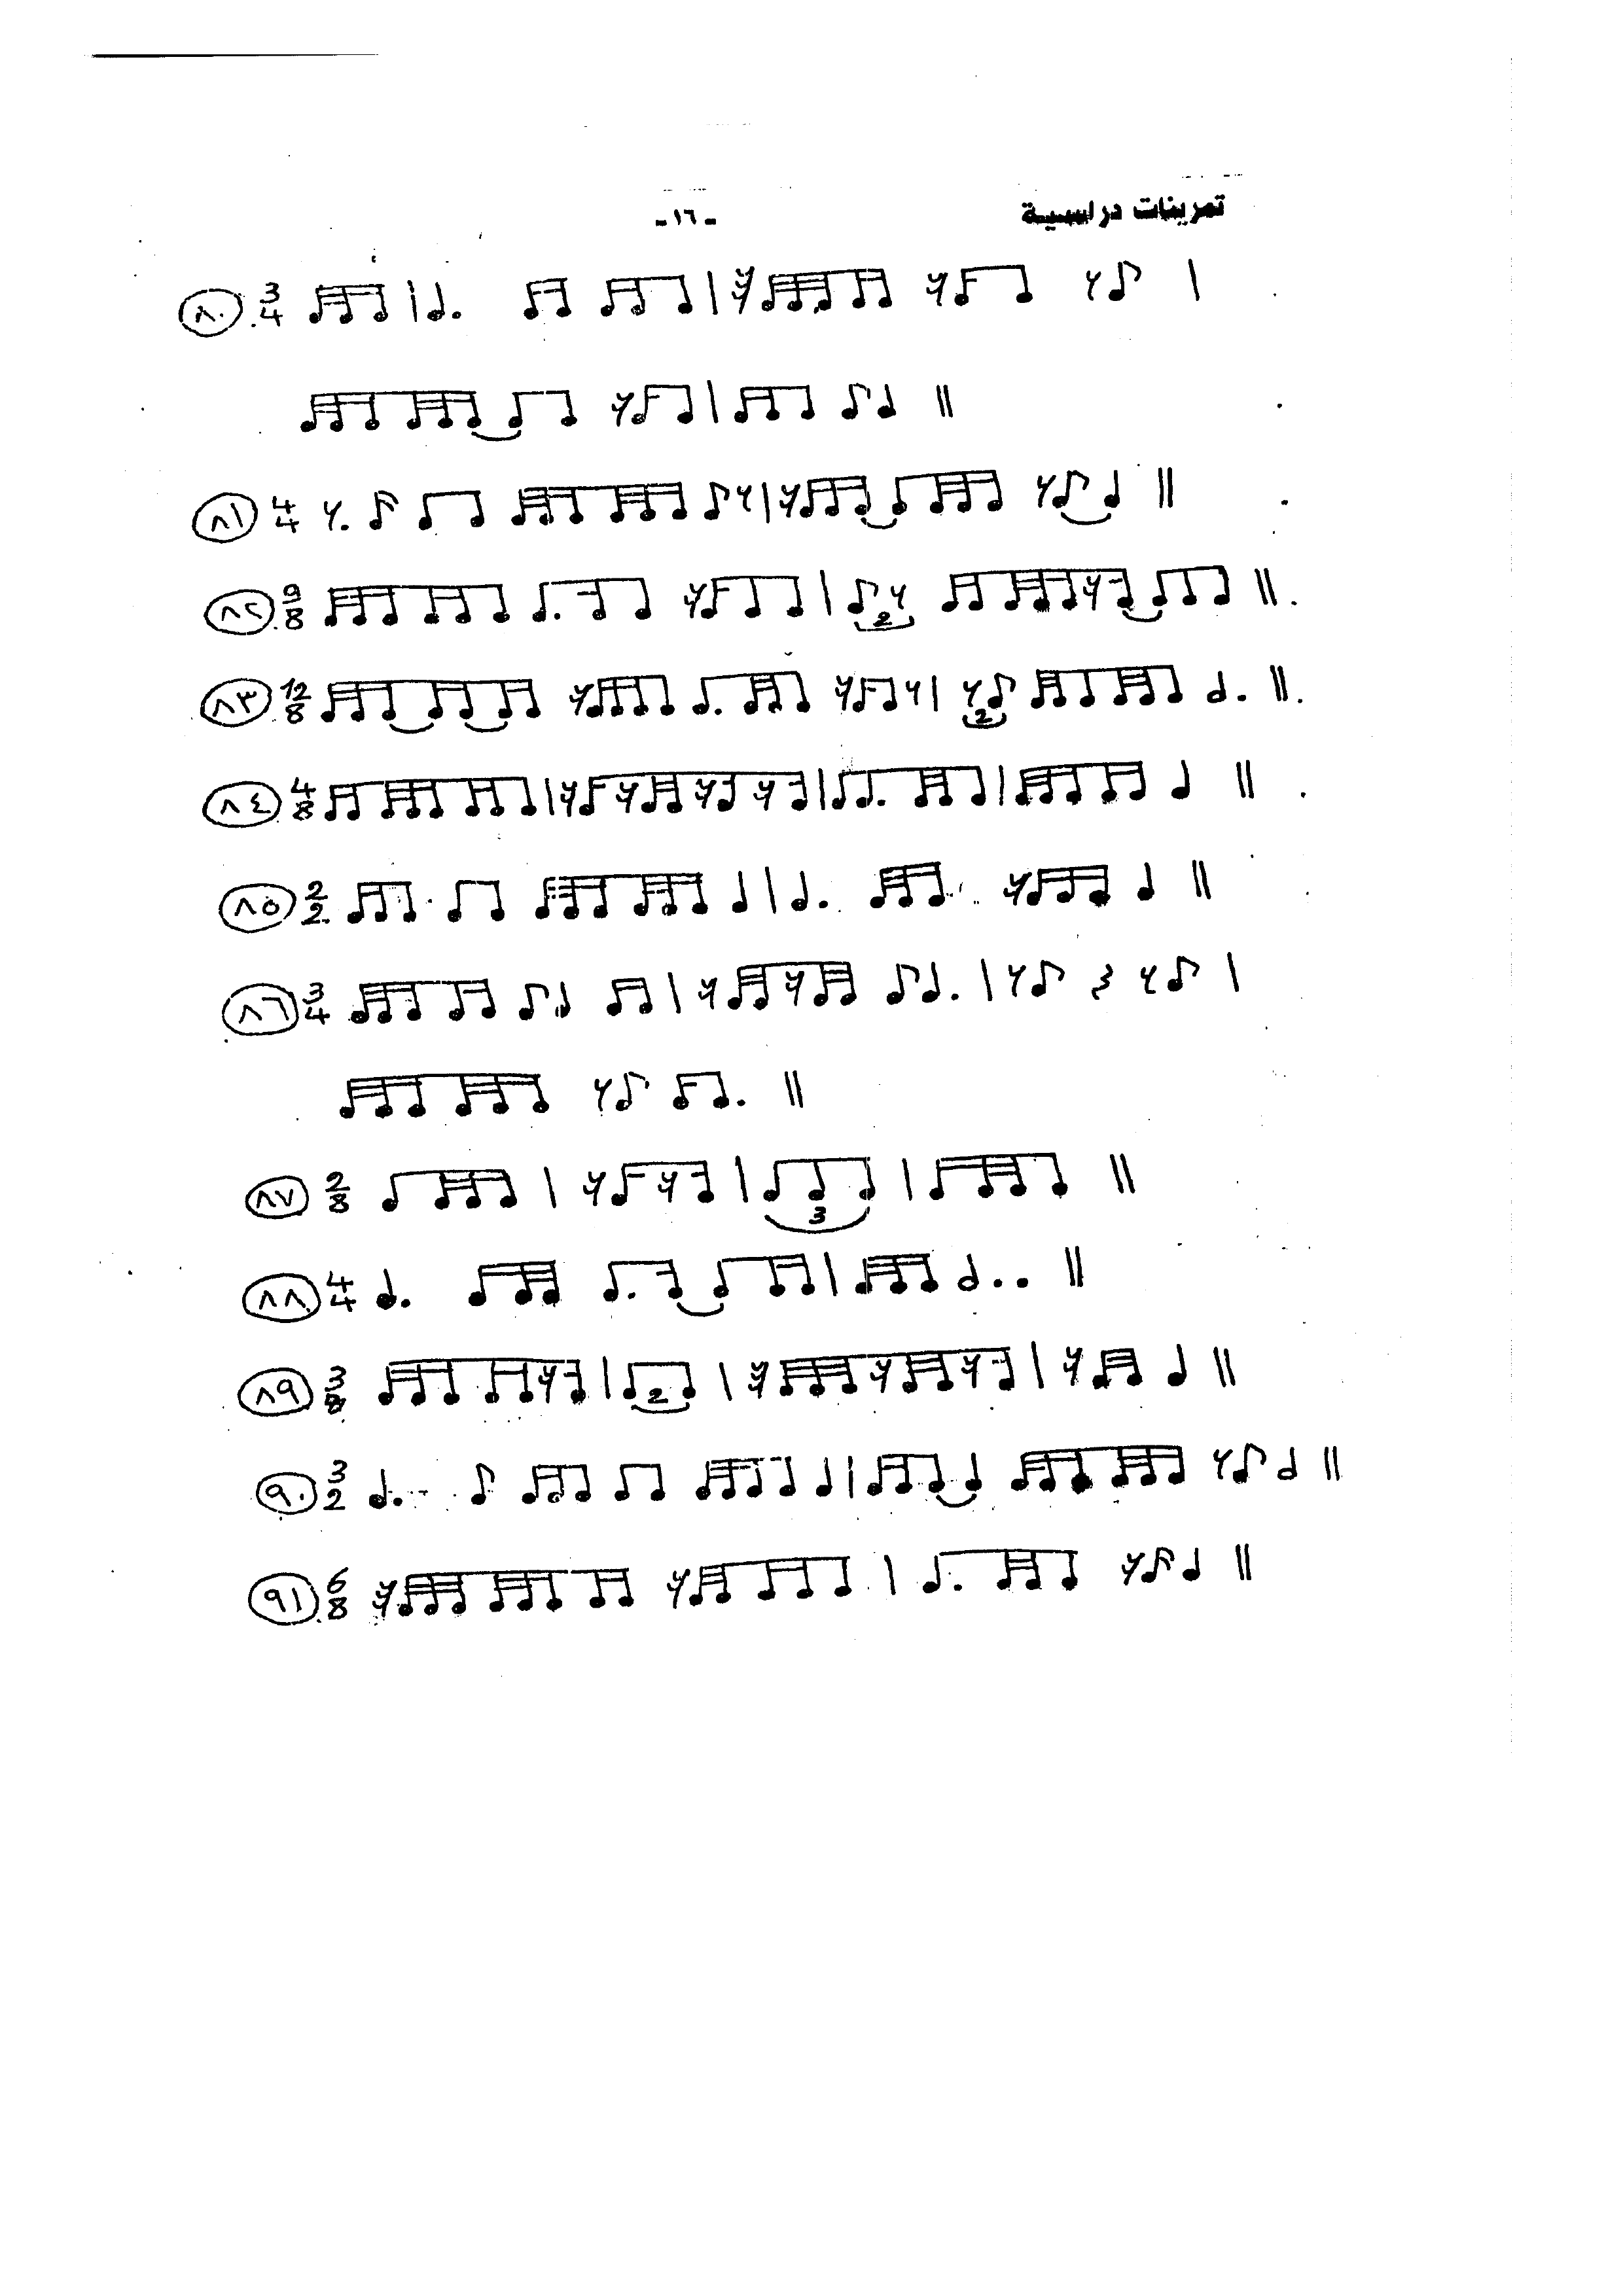 تمرينات دراسية
-١٦-
٨٠ 3/4
٨١ 4/4
٨٢ 9/8
2
٨٣ 12/8
2
٨٤ 4/8
٨٥ 2/2
٨٦ 3/4
٨٧ 2/8
3
٨٨ 4/4
٨٩ 3/8
2
٩٠ 3/2
٩١ 6/8